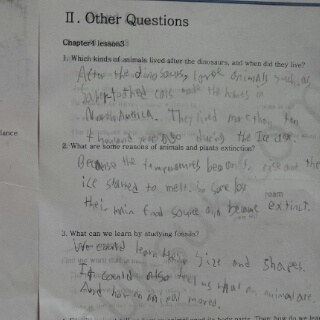 II. Other Questions
Chapter4 lesson3
1. Which kinds of animals lived after the dinosaurs, and when did they live?
After the dinosaurs, large animals such as
saber-toothed cats made the homes in
North America. They lived more than ten
thousand years ago during the Ice age.
2. What are some reasons of animals and plants extinction?
Because the temperatures began to rise and the
ice started to melt. So some lost
their main food source and became extinct.
3. What can we learn by studying fossils?
We could learn their size and shapes.
It could also tell us what an animal ate.
And how an animal moved.